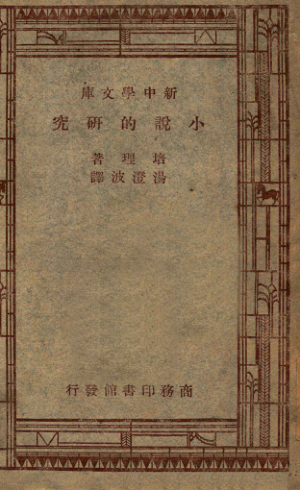 新中學文庫
小說的研究
培理著
湯澄波譯
商務印書館發行